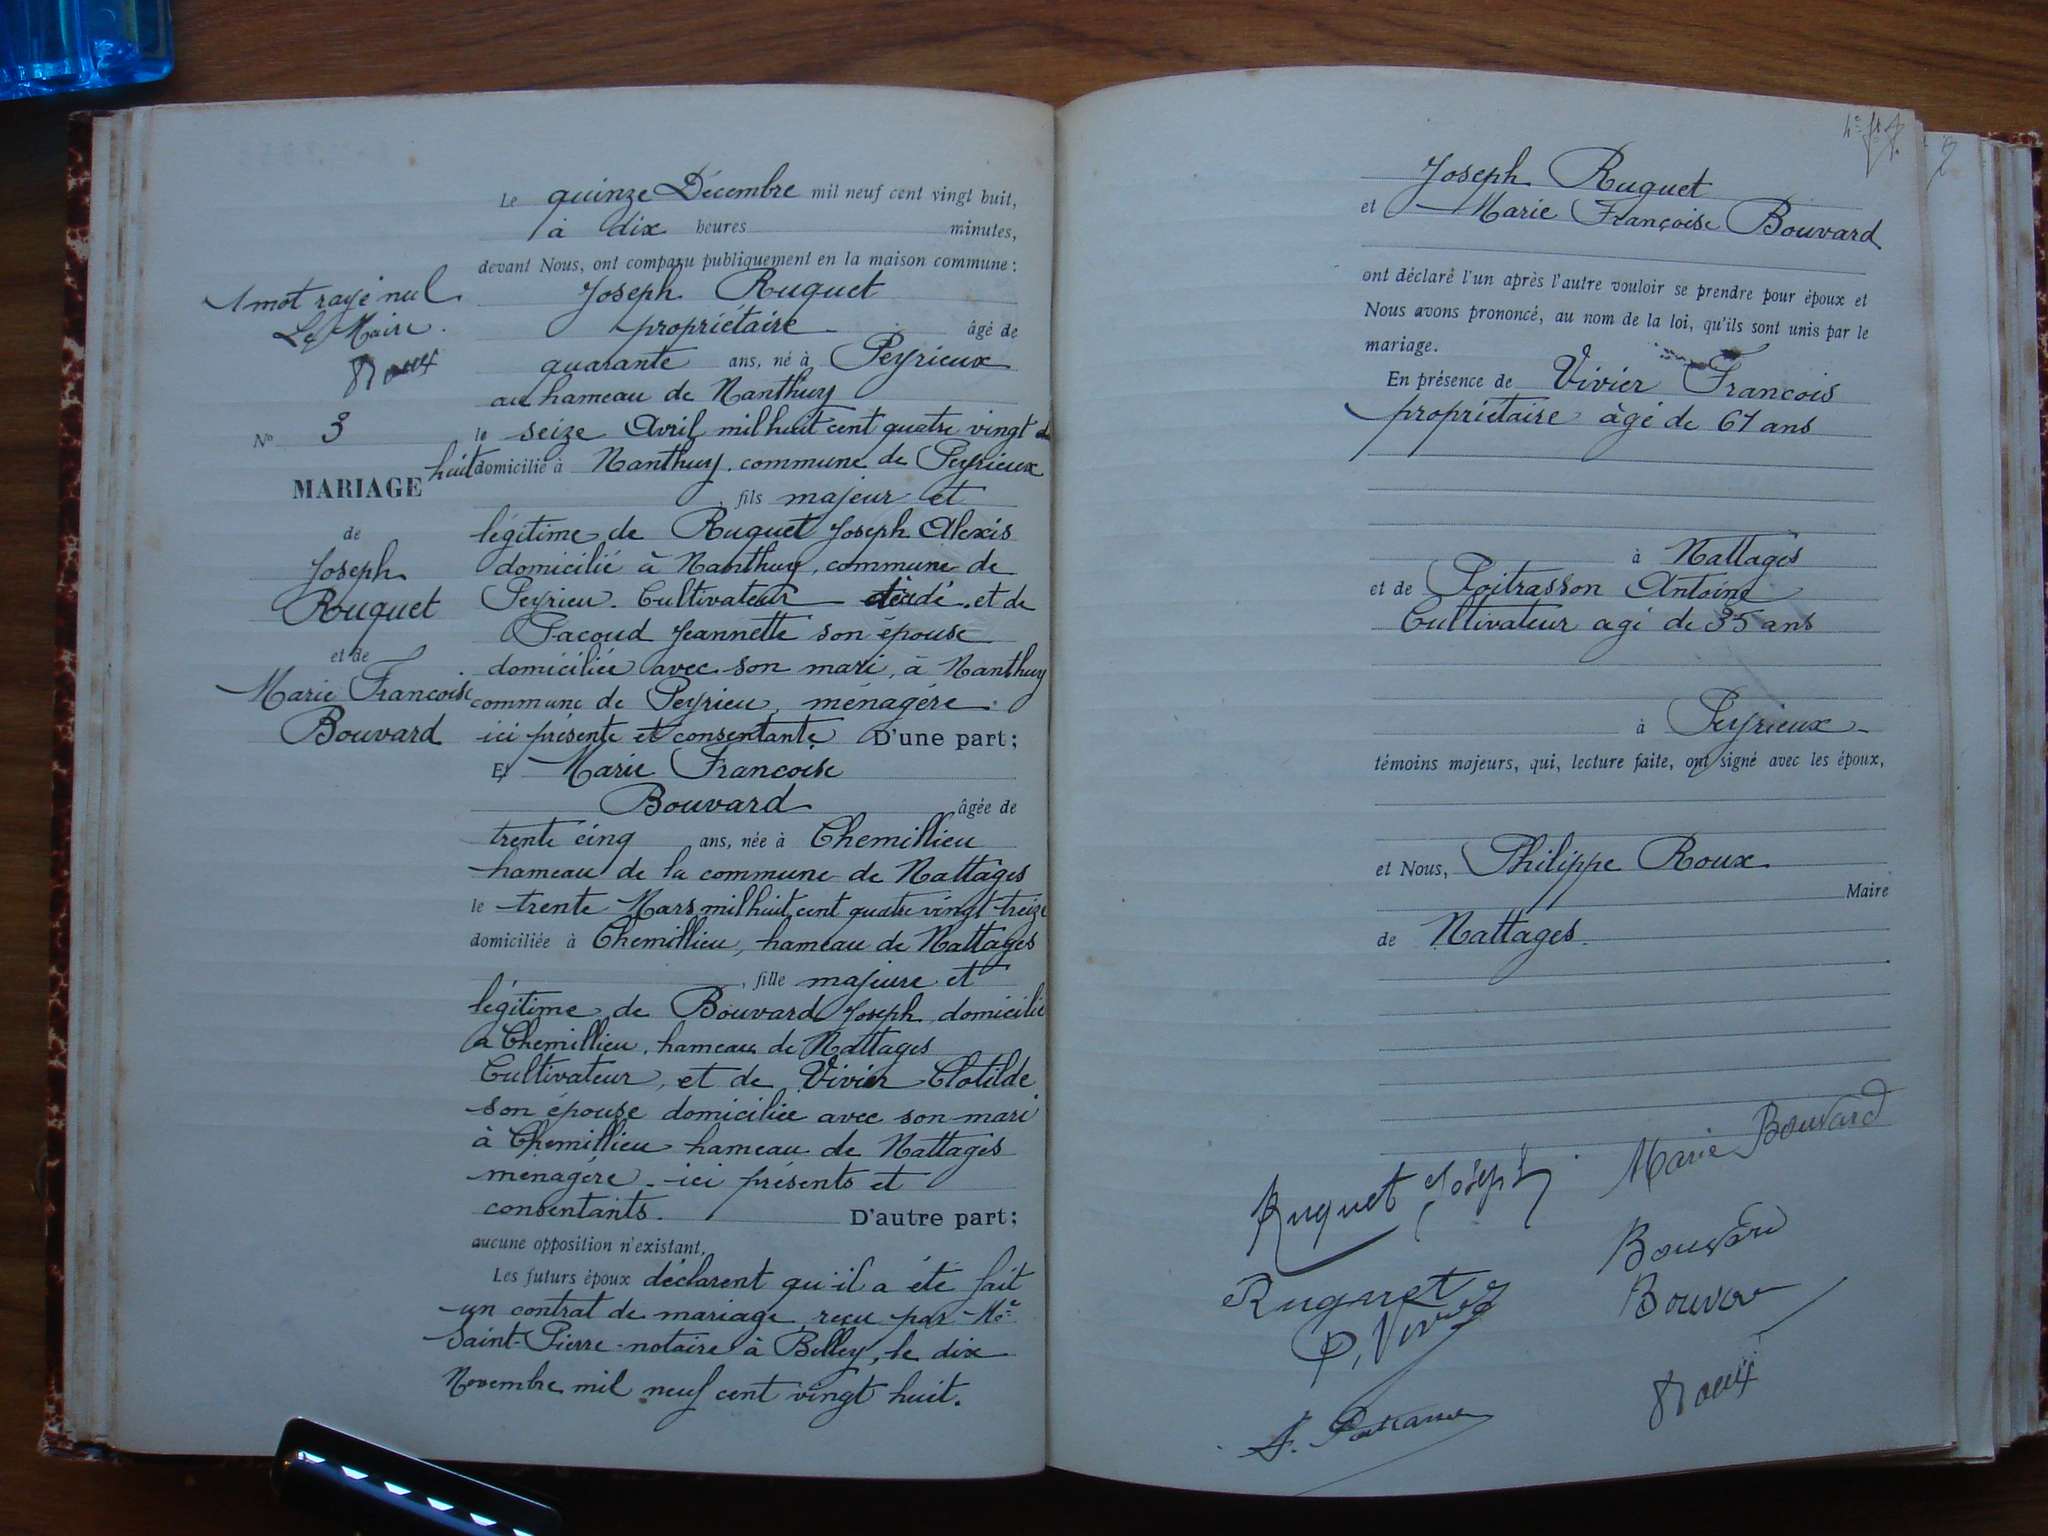 1 mot rayé nul
Le Maire.
Roux
N° 3
MARIAGE
de
Joseph
Ruquet
et de
Marie Francoise
Bouvard
Le quinze Décembre mil neuf cent vingt huit,
à dix heures minutes,
devant Nous, ont comparu publiquement en la maison commune :
Joseph Ruquet
propriétaire âgé de
quarante ans, né à Peyrieux
au hameau de Nanthuy
le seize Avril mil huit cent quatre vingt
huit domicilié à Nanthuy, commune de Peyrieux
, fils majeur et
légitime de Ruquet Joseph Alexis
domicilié à Nanthuy, commune de
Peyrieu. Cultivateur et de
Pacoud Jeannette son épouse
domiciliée avec son mari, à Nanthuy
commune de Peyrieu, ménagère
ici présente et consentante D'une part ;
Et Marie Francoise
Bouvard âgée de
trente cinq ans, née à Chemillieu
hameau de la commune de Nattages
le trente Mars mil huit cent quatre vingt treize
domiciliée à Chemillieu, hameau de Nattages
, fille majeure et
légitime de Bouvard Joseph domicilié
à Chemillieu, hameau de Nattages
Cultivateur, et de Vivier Clotilde
son épouse domiciliée avec son mari
à Chemillieu hameau de Nattages
menagère - ici présents et
consentants. D'autre part ;
aucune opposition n'existant,
Les futurs époux déclarent qu'il a été fait
un contrat de mariage, reçu par Me
Saint-Pierre notaire à Belley, le dix
Novembre mil neuf cent vingt huit.
Joseph Ruquet
et Marie Françoise Bouvard
ont déclaré l'un après l'autre vouloir se prendre pour époux et
Nous avons prononcé, au nom de la loi, qu'ils sont unis par le
mariage.
En présence de Vivier Francois
propriétaire âgé de 61 ans
à Nattages
et de Poitrasson Antoine
Cultivateur agé de 35 ans
à Peyrieux
témoins majeurs, qui, lecture faite, ont signé avec les époux,
et Nous, Philippe Roux
Maire
de Nattages.
Marie Bouvard
Ruquet Joseph
Bouvard
Ruquet
Roux